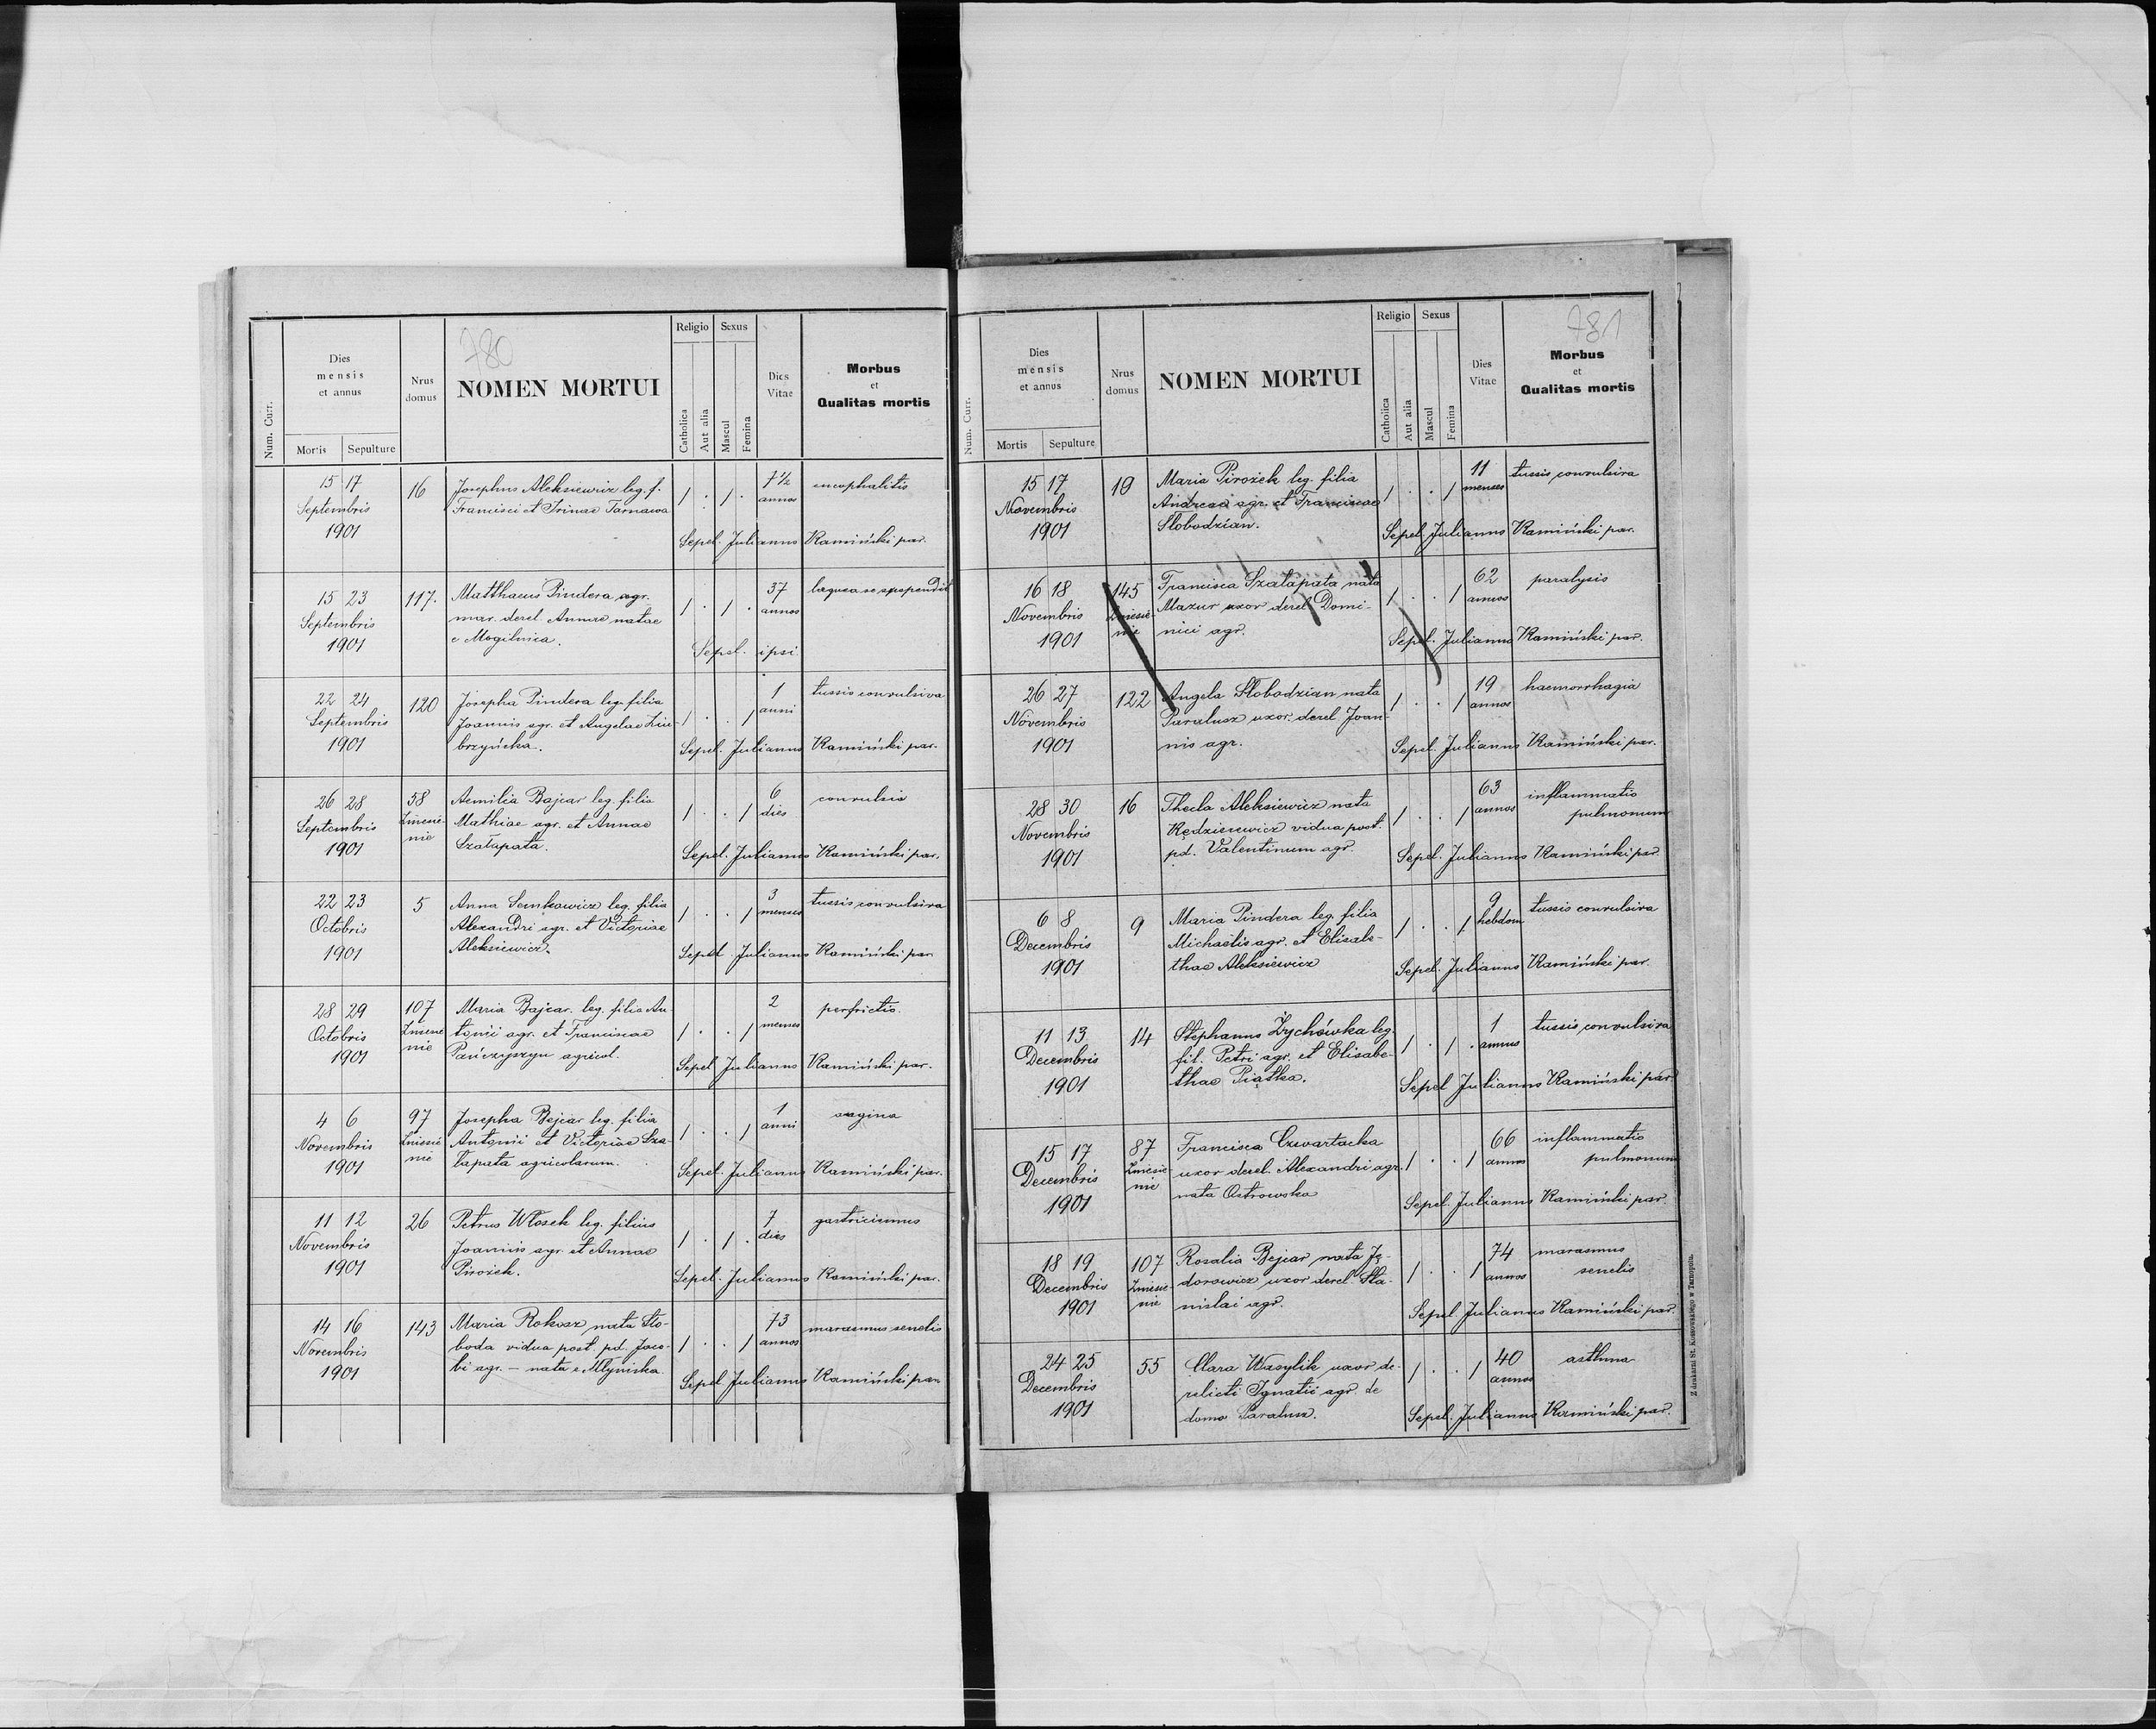 780
Num. Curr.
Dies mensis et annus
Mortis Sepulture
Nrus domus
NOMEN MORTUI
Religio Sexus
Catholica Aut alia Mascul Femina
Dies Vitae
Morbus et Qualitas mortis
15 17 16 Josephus Aleksiewicz leg. f. / . / . 7½ encephalitis
Septembris Francisci et Irinae Tarnawa annos
1901 Sepel. Julianus Kamiński par.
15 23 117. Matthaeus Pindera agr. / . / . 37 laqueo se suspendit
Septembris mar. derel. Annae natae annos
1901 e Mogilnica. Sepel. ipsi
22 24 120 Josepha Pindera leg. filia / . . / 1 tussis convulsiva
Septembris Joannis agr. et Angelae anni
1901 Sepel. Julianus Kamiński par.
26 28 58 Aemilia Bajcar leg. filia / . . / 6 convulsio
Septembris Zniesie- Mathiae agr. et Annae dies
1901 nie Szałapata. Sepel. Julianus Kamiński par.
22 23 5 Anna Semkowicz leg. filia / . . / 3 tussis convulsiva
Octobris Alexandri agr. et Victoriae menses
1901 Aleksiewicz. Sepel. Julianus Kamiński par
28 29 107 Maria Bajcar leg. filia An- / . . / 2 perfrictio
Octobris Zniesie tonii agr. et Franciscae menses
1901 nie Pańczyszyn agricol. Sepel Julianus Kamiński par.
4 6 97 Josepha Bejcar leg. filia / . . / 1 angina
Novembris Zniesie Antonii et Victoriae Sza- anni
1901 nie łapata agricolarum. Sepel. Julianus Kamiński par.
11 12 26 Petrus Włosek leg. filius / . / . 7 gastricismus
Novembris Joannis agr. et Annae dies
1901 Pirożek. Sepel. Julianus Kamiński par.
14 16 143 Maria Rokosz nata Sło- / . . / 73 marasmus senelis
Novembris boda vidua post pd. Jaco- annos
1901 bi agr. – nata e Młyniska Sepel. Julianus Kamiński par
781
Num. Curr.
Dies mensis et annus
Mortis Sepulture
Nrus domus
NOMEN MORTUI
Religio Sexus
Catholica Aut alia Mascul Femina
Dies Vitae
Morbus et Qualitas mortis
15 17 19 Maria Pirożek leg. filia / . . / 11 tussis convulsiva
Novembris Andreae agr. et Franciscae menses
1901 Słobodzian. Sepel. Julianus Kamiński par.
16 18 145 Francisca Szałapata nata / . . / 62 paralysis
Novembris Zniesie- Mazur uxor derel. Domi- annos
1901 nie nici agr. Sepel. Julianus Kamiński par.
26 27 122 Angela Słobodzian nata / . . / 19 haemorrhagia
Novembris Paralusz uxor. derel Joan- annos
1901 nis agr. Sepel. Julianus Kamiński par.
28 30 16 Thecla Aleksiewicz nata / . . / 63 inflammatio
Novembris Kędzierewicz vidua post. annos pulmonum
1901 pd. Valentinum agr. Sepel. Julianus Kamiński par.
6 8 9 Maria Pindera leg. filia / . . / 9 tussis convulsiva
Decembris Michaëlis agr. et Elisabe- hebdom
1901 thae Aleksiewicz Sepel. Julianus Kamiński par.
11 13 14 Stephanus Zychówka leg. / . / . 1 tussis convulsiva
Decembris fil. Petri agr. et Elisabe- annus
1901 thae Piatka. Sepel Julianus Kamiński par
15 17 87 Francisca Czwartacka / . . / 66 inflammatio
Decembris Zniesie uxor derel. Alexandri agr. annos pulmonum
1901 nie nata Ostrowska Sepel. Julianus Kamiński par.
18 19 107 Rosalia Bejcar nata / . . / 74 marasmus
Decembris Zniesie dorowicz uxor derel. Sta- annos senelis
1901 nie nislai agr. Sepel Julianus Kamiński par.
24 25 55 Clara Wasylik uxor de- / . . / 40 asthma
Decembris relicti Ignatii agr. de annos
1901 domo Paralusz. Sepel. Julianus Kamiński par.
Z drukarni St. Kossowskiego w Tarnopolu.